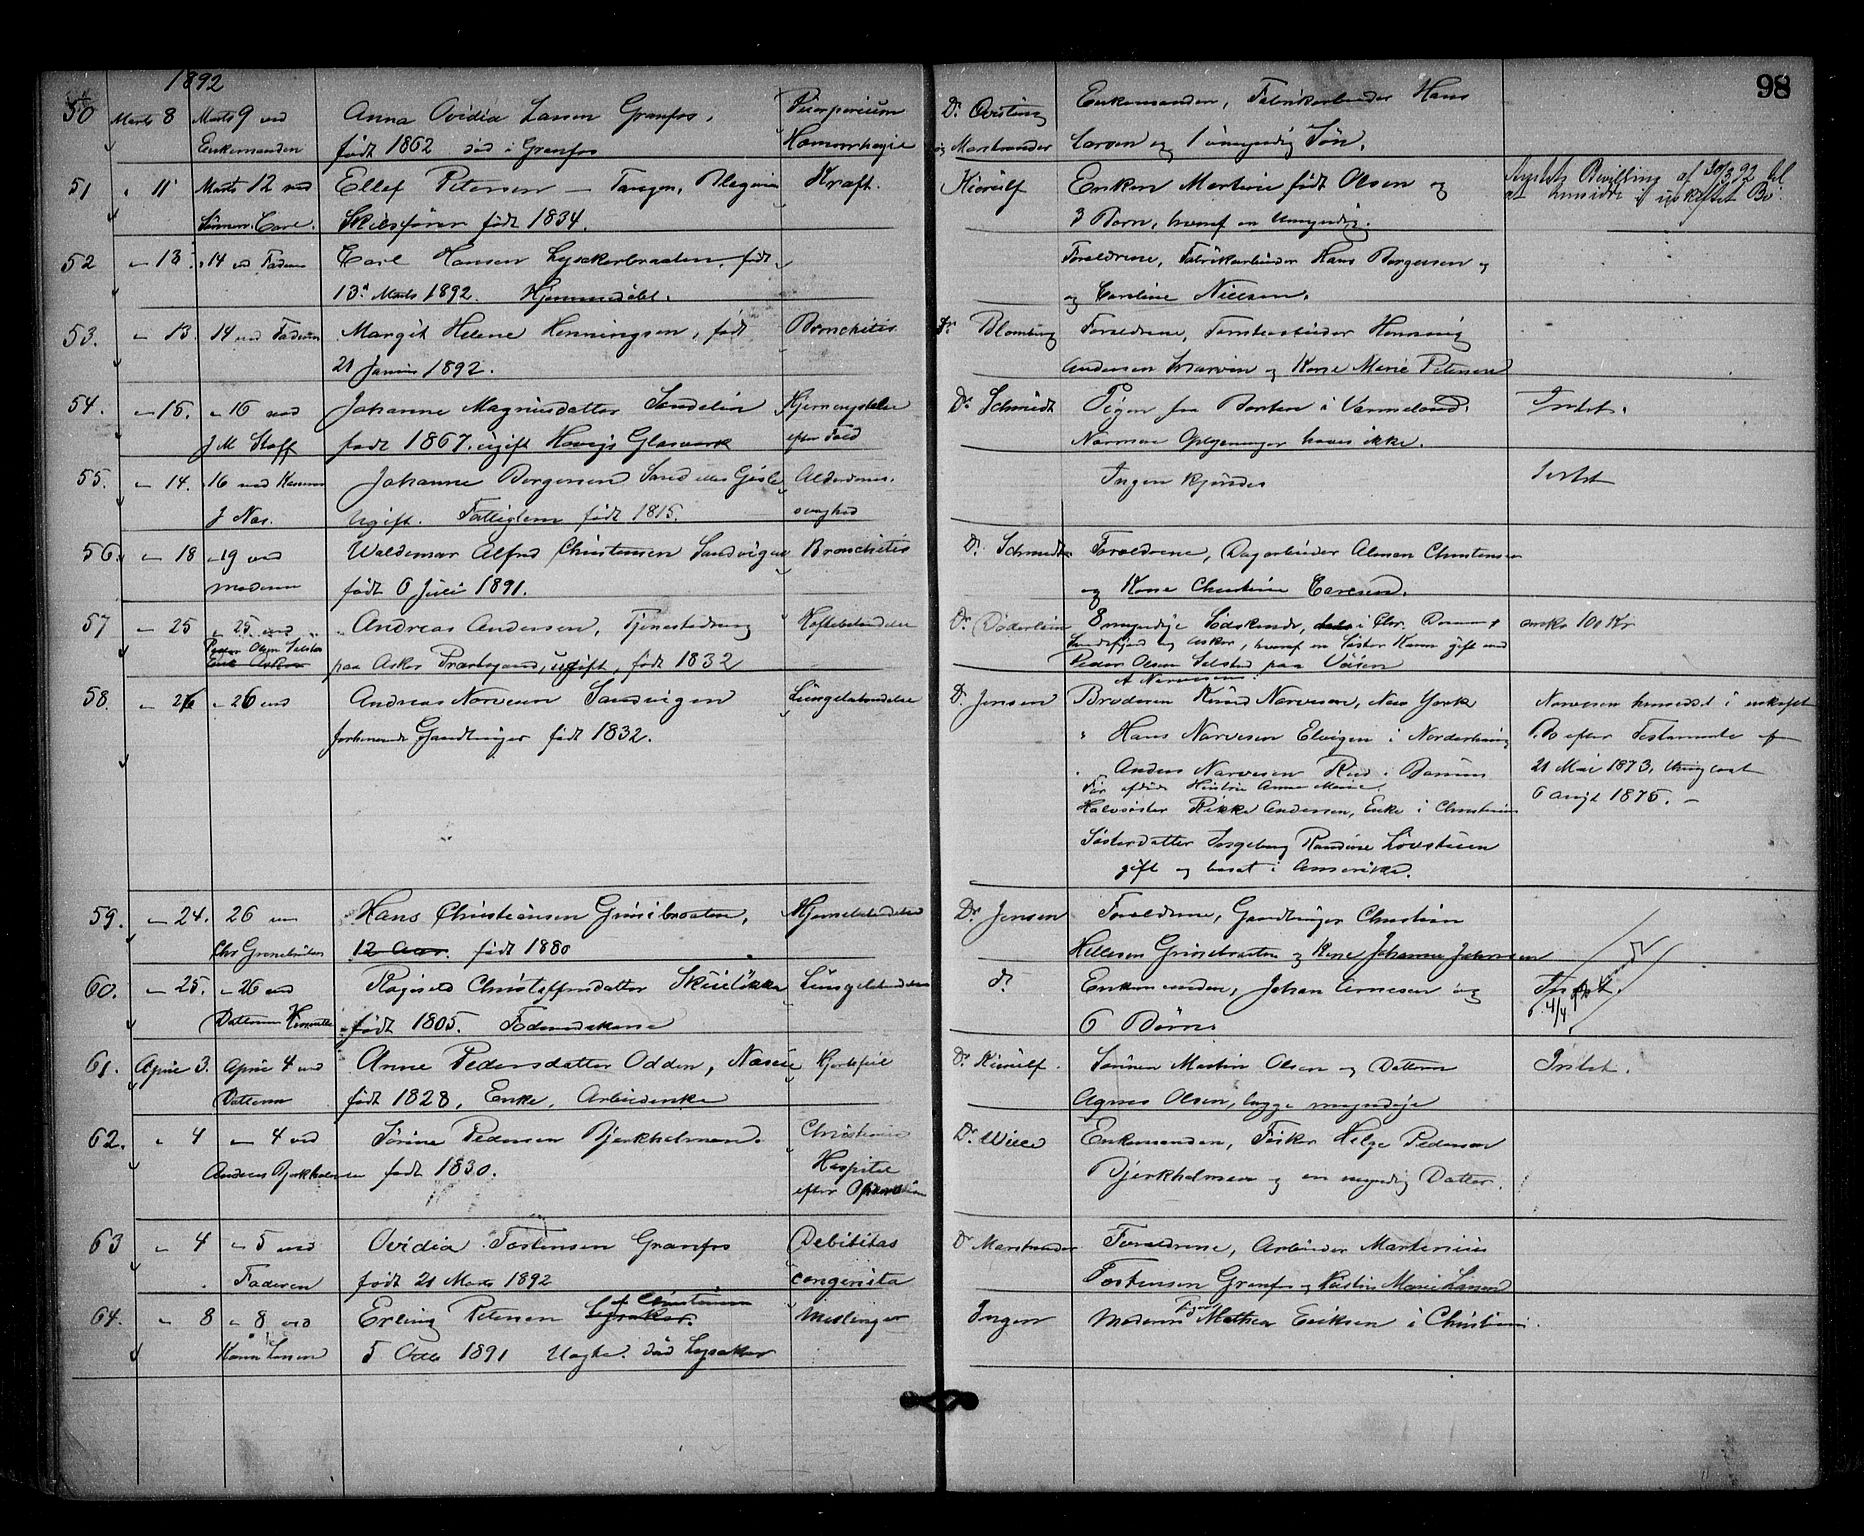 98
1892
50 Marts 8 Marts 9 ved Anna Ovidia Larsen Granfos, Puerperium Dr. Enkemanden, Fabrikarbeider Hans
Enkemanden født 1862 død i Granfos Hæmorrhagie og Marstrander Larsen og 1 umyndig Søn.
51 " 11 Marts 12 ved Ellef Petersen — Tangen, Kræft. Kierulf Enken Martine født Olsen og Bevilling af 30/3 92 til
Sønnen Carl. Skibsfører født 1834. 3 Børn, hvoraf en umyndig. at hensidde i uskiftet Bo.
52 " 13 " 14 ved Faderen Carl Hansen Lysakerbraaten, født Forældrene, Fabrikarbeider Hans Borgersen og
13de Marts 1892. Hjemmedøbt. og Caroline Nielsen.
53. " 13. 14 ved Faderen Margit Helene Henningsen, født Bronchitis Dr. Blomberg Forældrene, Henning
21 Januar 1892. Andersen og Kone Marie Petersen
54. " 15. " 16 ved Johanne Magnusdatter Sandelin Hjernerystelse Dr. Schmidt Pigen fra i Vermeland. Intet.
J M Stoff født 1867. ugift Høviks Glasværk efter Fald Nærmere Oplysninger haves ikke.
55. " 14. 16 ved Johanne Borgersen Sand eller Gisle Alderdoms- Ingen kjendes Intet
J Næs. Ugift. Fattiglem født 1815. svaghed
56. " 18 " 19 ved Waldemar Alfred Christensen Sandvigen Bronchitis Dr. Schmidt Forældrene, Dagarbeider Christensen
moderen født 6 Juli 1891. og Kone Christine Carlsen.
57 " 25 " 25 ved Andreas Andersen, Tjenestedreng Dr. Döderlein 8 myndige Sødskende, i Chr. Bærum & ca 100 Kr
Peder Olsen Selstad paa Asker Præstegaard, ugift, født 1832 og Asker, hvoraf en Søster Karen gift med
Peder Olsen Selstad paa Vøien
58. " 26 " 26 ved Andreas Narvesen Sandvigen Lungebetændelse Dr. Jensen Broderen Knud Narvesen, New York Narvesen hensidder i uskiftet
A Narvesen
forhenværende Gaardbruger født 1832. " Hans Narvesen Elvigen i Norderhoug Bo efter Testamente af
" Anders Narvesen Rud i Bærum 21 Mai 1873,
Før afdøde Hustru Anne Marie. 6 Augt 1875. —
Halvsøster Rikke Andersen, Enke i Christiania
Søsterdatter Ingeborg Randine Løvstuen
gift og bosat i Amerika.
59. " 24. 26 ved Hans Christiansen Grinibraaten, Hjernebetændelse Dr. Jensen Forældrene, Gaardbruger Christian
Chr Grinibraaten 12 Aar. født 1880 Hellesen Grinibraaten og Kone Johanne Johnsen
60. " 25. " 26 ved Ragnild Christoffersdatter Skuiløkka Lungebetændelse do Enkemanden, Johan Arnesen og Intet.
Datteren født 1805. Føderaadskone 6 Børn
61. April 3. April 4 ved Anne Pedersdatter Odden, Næsøen Hjertefeil Dr. Kierulf. Sønnen Martin Olsen og Datteren Intet.
Datteren født 1828, Enke, Arbeiderenke Agnes Olsen, begge myndige
62. " 4 " 4 ved Sørine Pedersen Bjerkholmen. Christiania Dr. Wille Enkemanden, Fisker Helge Pedersen
Andreas Bjerkholmen født 1830. Hospital Bjerkholmen og en myndig Datter.
efter Operation
63 " 4 " 5 ved Ovidia Torstensen Granfos Debilitas Dr. Marstrander Forældrene, Arbeider Martinius
Faderen født 21 Marts 1892 congenita Torstensen Granfos og Marie Larsen
64. " 8 " 8 ved Erling Petersen Lysaker. af Christiania Meslinger Ingen moderen Pige Mathea Eriksen i Christiania.
Karen Larsen 5 Octb 1891 Uægte. død Lysaker